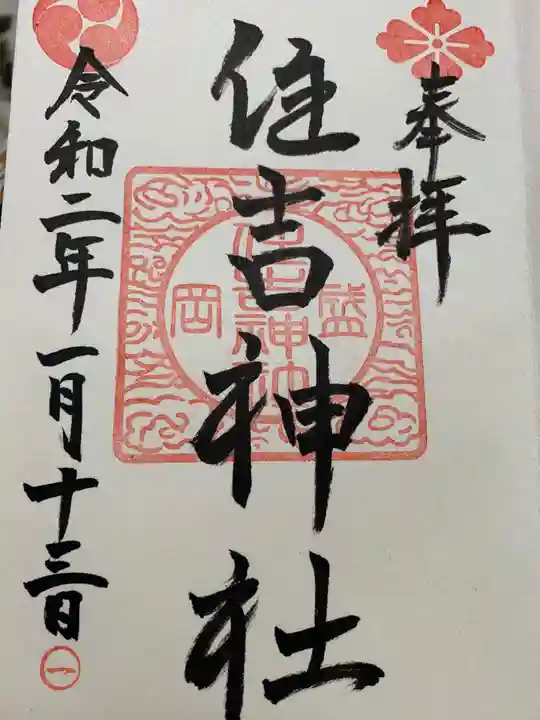 奉拝
住吉神社
盛
岡
住吉神社
令和二年一月十三日
一